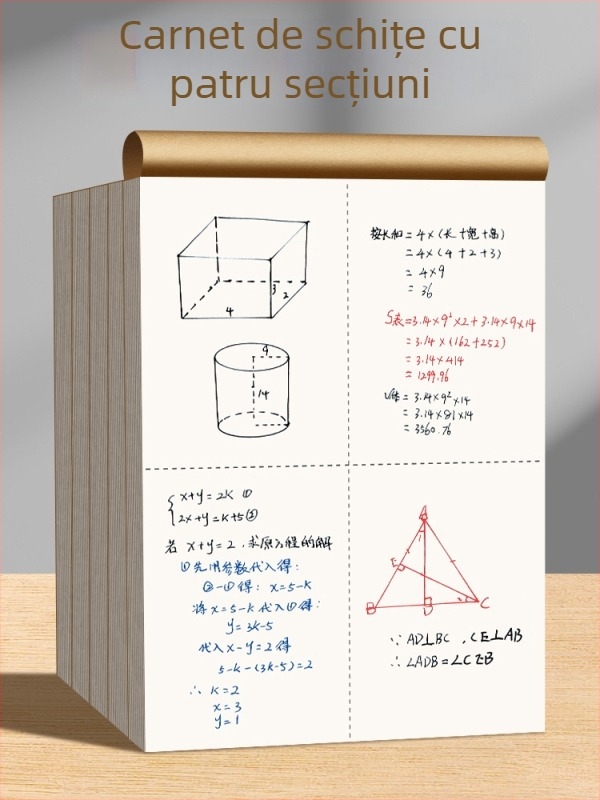 Carnet de schițe cu
patru secțiuni
3
2
4
棱长和 = 4×(长+宽+高)
= 4×(4+2+3)
= 4×9
= 36
9
14
S表=3.14×9²×2+3.14×9×14
= 3.14×(162+252)
= 3.14×414
= 1299.96
= 3.14×9²×14
= 3.14×81×14
= 3560.76
x+y=2k ①
2x+y=k+5 ②
若 x+y=2 ,求原方程的解
①先用参数代入得:
②-①得: x=5-k
将x=5-k代入①得:
y=3k-5
代入x-y=2得
5-k-(3k-5)=2
∴ k=2
x=3
y=1
A
E
B
D
C
∵ AD⊥BC ,CE⊥AB
∴ ∠ADB=∠CEB